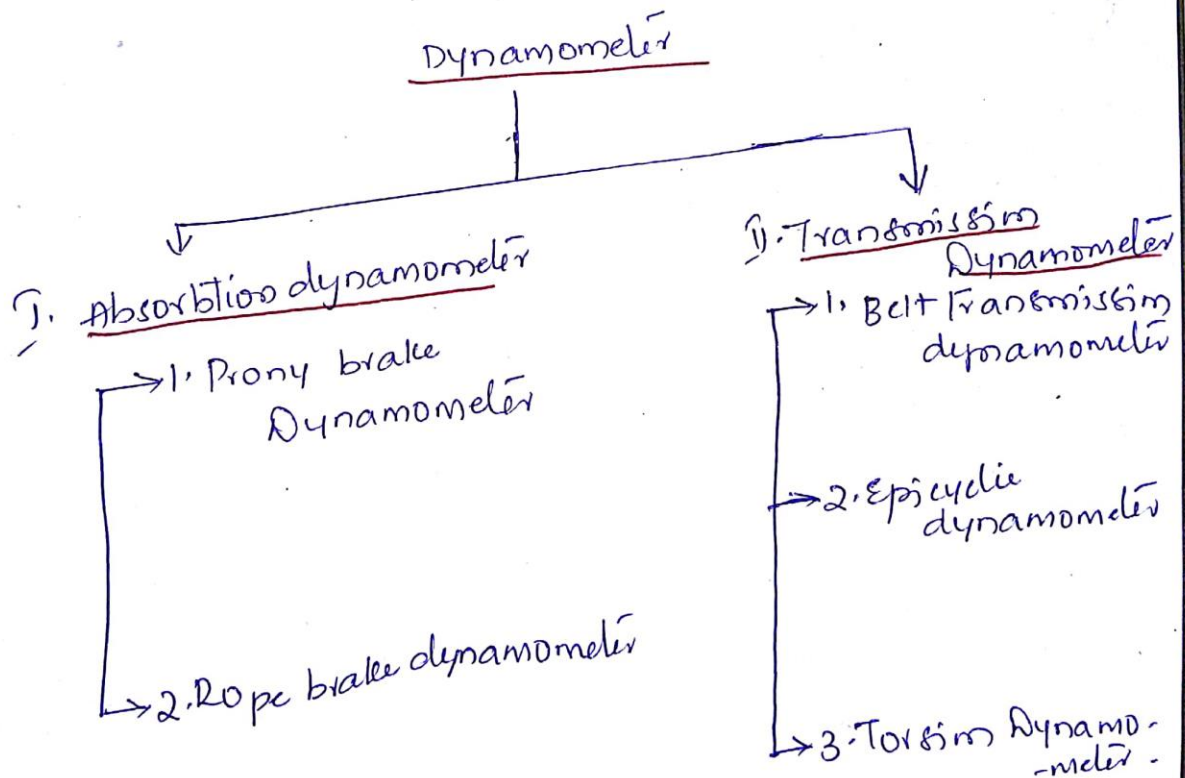 Dynamometer
I. Absorbtion dynamometer
→1. Prony brake
Dynamometer
→2. Rope brake dynamometer
II. Transmission
Dynamometer
→1. Belt Transmission
dynamometer
→2. Epicyclic
dynamometer
→3. Torsion Dynamo-
-meter.